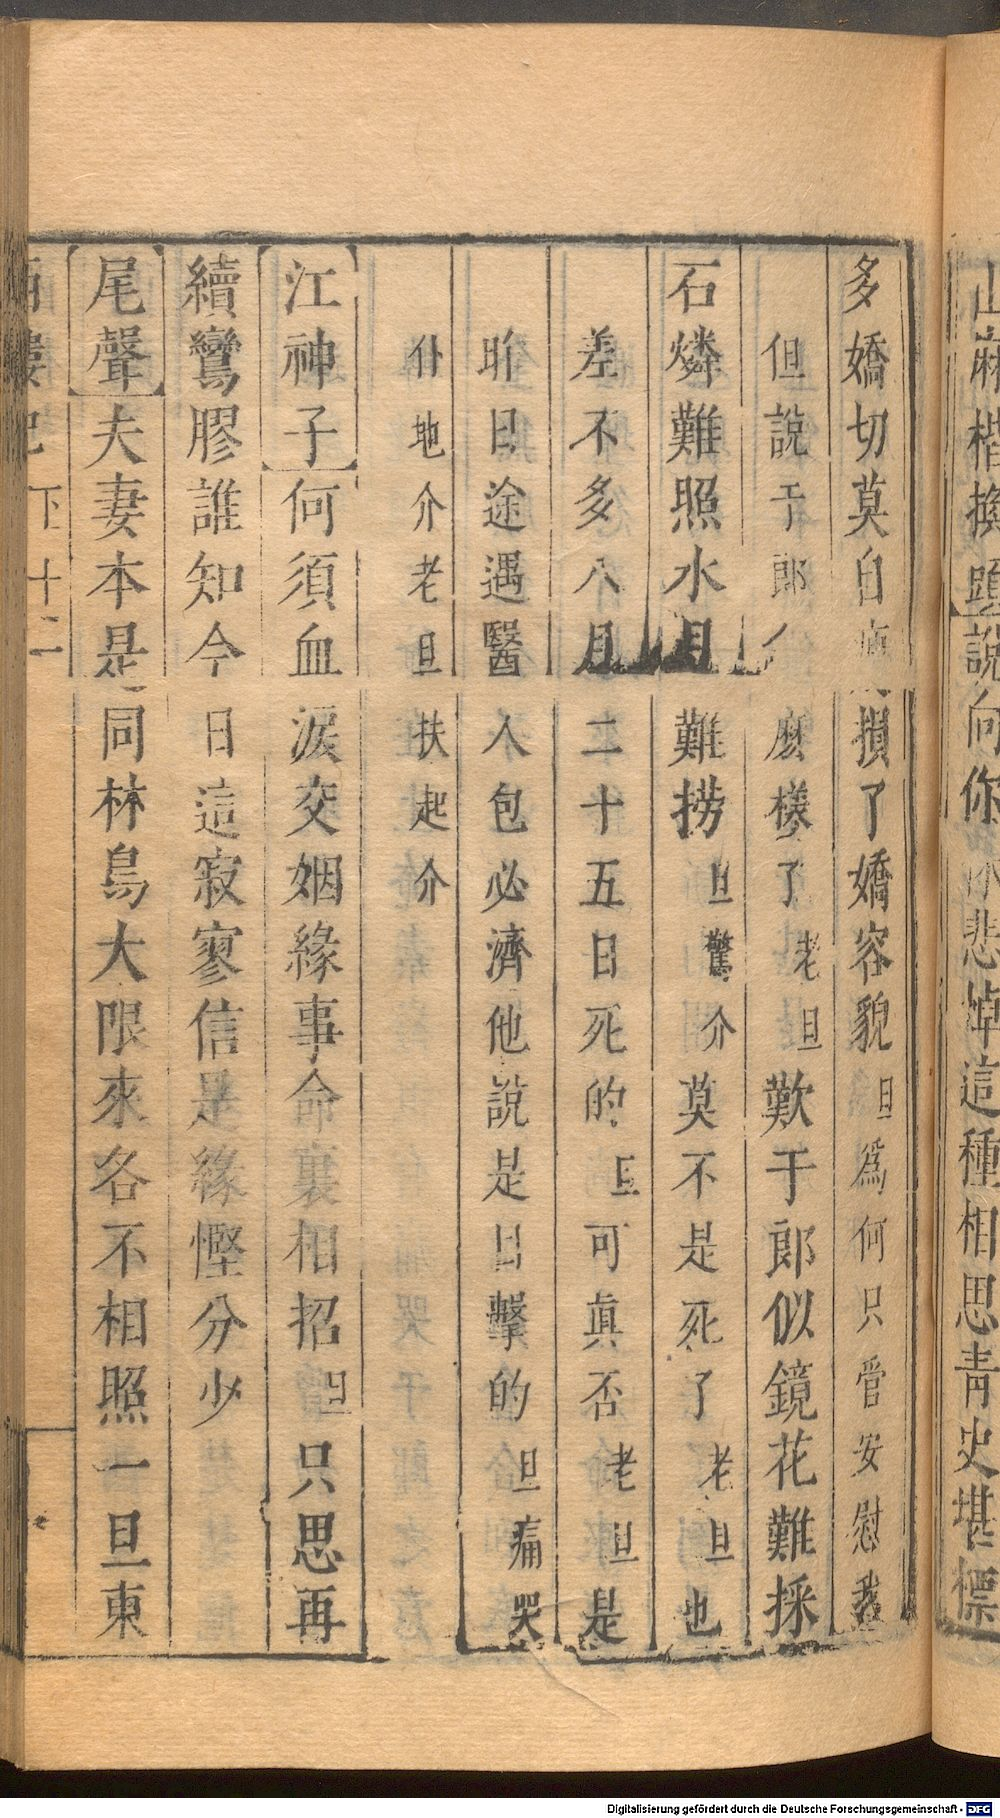 山麻楷換頭說向你休悲悼這種相思青史堪標
多嬌切莫自損了嬌容貌旦為何只管安慰我
但說于郎麽樣了老旦歎于郎似鏡花難採
石燐難照水月難撈旦驚介莫不是死了老旦也
差不多八月二十五日死的旦可真否老旦是
昨日途遇醫人包必濟他說是目擊的旦痛哭
仆地介老旦扶起介
江神子何須血淚交姻緣事命裏相招旦只思再
續鸞膠誰知今日這寂寥信是緣慳分少
尾聲夫妻本是同林鳥大限來各不相照一旦東
西樓記 下 十二
Digitalisierung gefördert durch die Deutsche Forschungsgemeinschaft - DFG